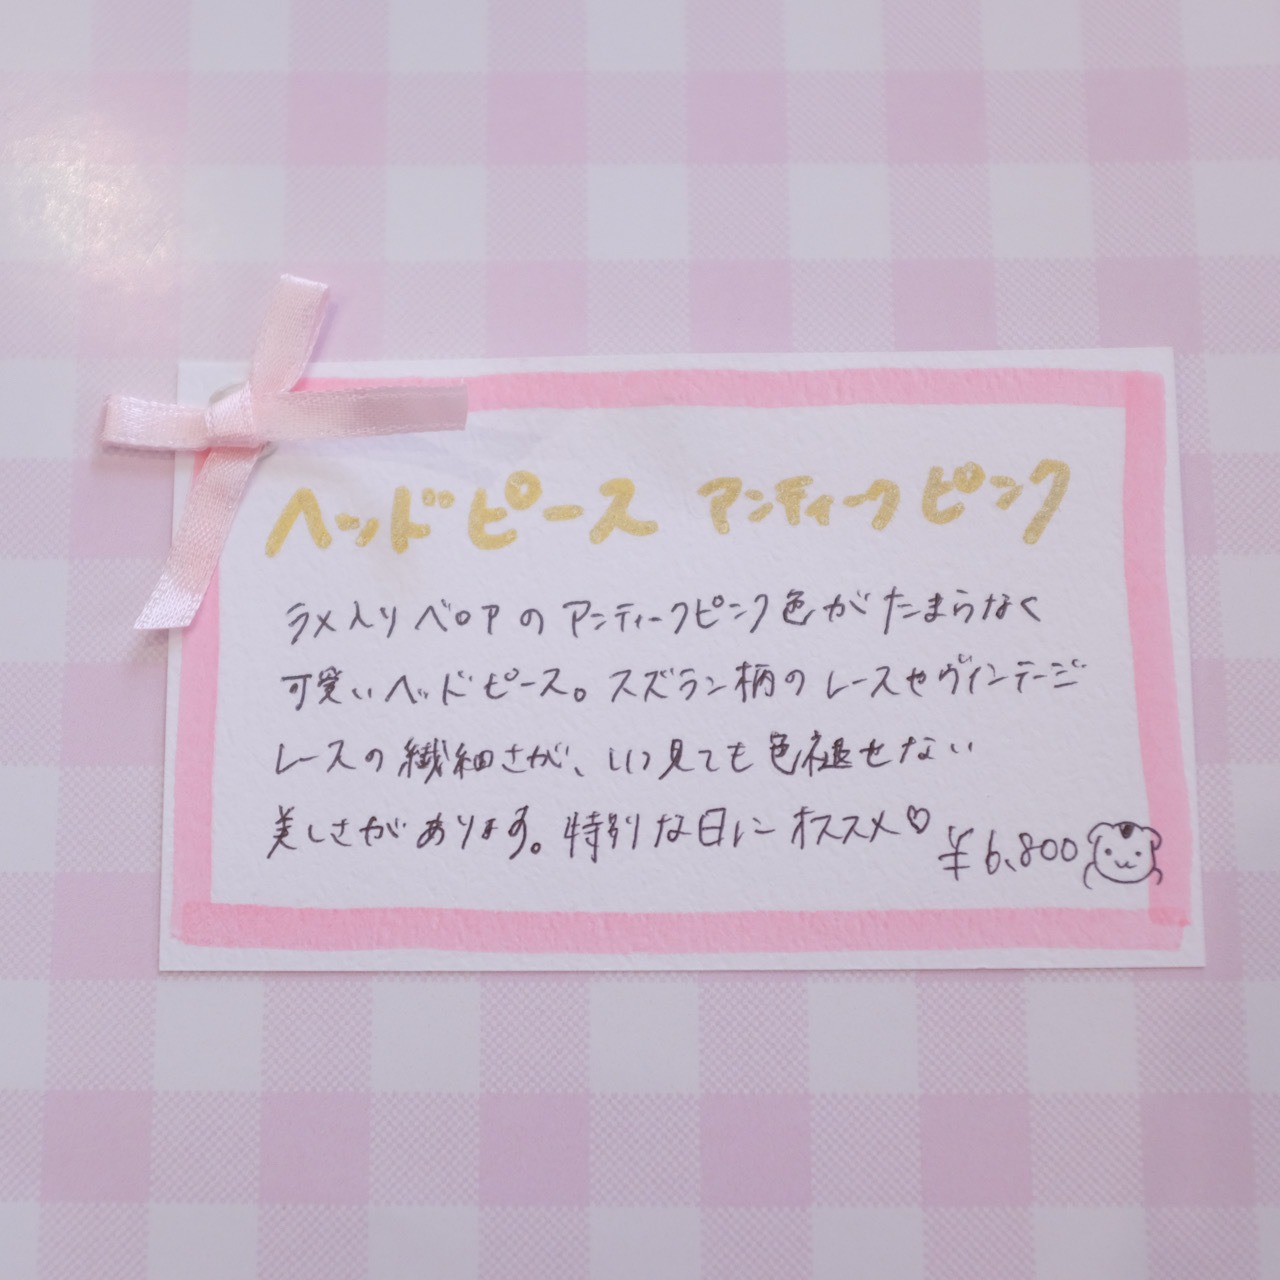 ヘッドピース アンティークピンク
ラメ入りベロアのアンティークピンク色がたまらなく
可愛いヘッドピース。スズラン柄のレースやヴィンテージ
レースの繊細さが、いつ見ても色褪せない
美しさがあります。特別な日にオススメ♡
¥6,800